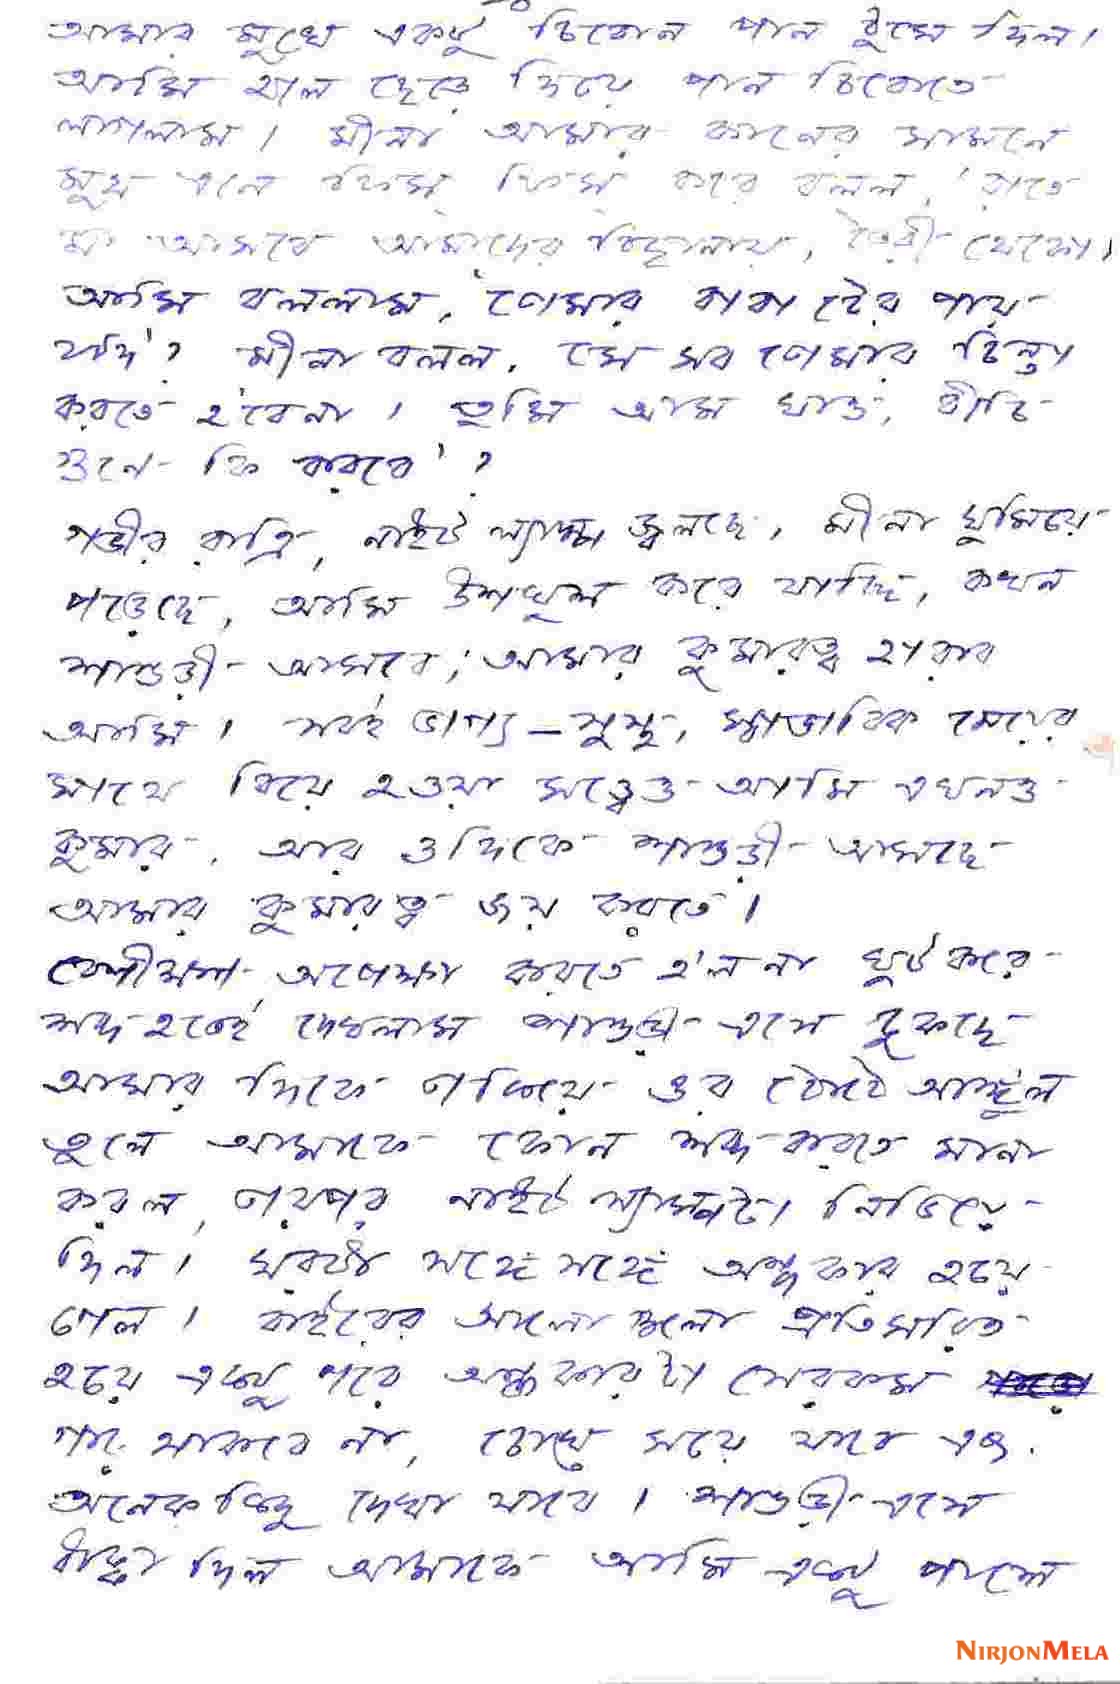 আমার মুখে একটু চিবোন পান ঠুসে দিল।
আমি হাল ছেড়ে দিয়ে পান চিবোতে
লাগলাম। মীনা আমার কানের সামনে
মুখ এনে ফিস ফিস করে বলল, 'রাতে
মা আসবে আমাদের বিছানায়, তৈরী থেকো।
আমি বললাম, 'তোমার বাবা টের পায়
যদি'? মীনা বলল, সে সব তোমার চিন্তা
করতে হ'বেনা। তুমি আম খাও, আঁটি
গুনে কি করবে'?
গভীর রাত্রি, নাইট ল্যাম্প জ্বলছে, মীনা ঘুমিয়ে
পড়েছে, আমি উশখুশ করে যাচ্ছি, কখন
শাশুড়ী আসবে; আমার কুমারত্ব হারাব
আমি। সবই ভাগ্য – সুস্থ, স্বাভাবিক মেয়ের
সাথে বিয়ে হওয়া সত্ত্বেও আমি এখনও
কুমার, আর ওদিকে শাশুড়ী আসছে
আমার কুমারত্ব জয় করতে।
বেশীক্ষণ অপেক্ষা করতে হ'ল না খুট করে
শব্দ হতেই দেখলাম শাশুড়ী এসে ঢুকছে
আমার দিকে তাকিয়ে ওর ঠোটে আঙ্গুল
তুলে আমাকে কোন শব্দ করতে মানা
করল, তারপর নাইট ল্যাম্পটা নিভিয়ে
দিল। ঘরটা সঙ্গে সঙ্গে অন্ধকার হয়ে
গেল। বাইরের আলো গুলো প্রতিসারিত
হয়ে একটু পরে অন্ধকারটা সেরকম
গাঢ় থাকবে না, চোখে সয়ে যাবে এবং
অনেক কিছু দেখা যাবে। শাশুড়ী এসে
ধাক্কা দিল আমাকে আমি একটু পাশে
NIRJONMELA